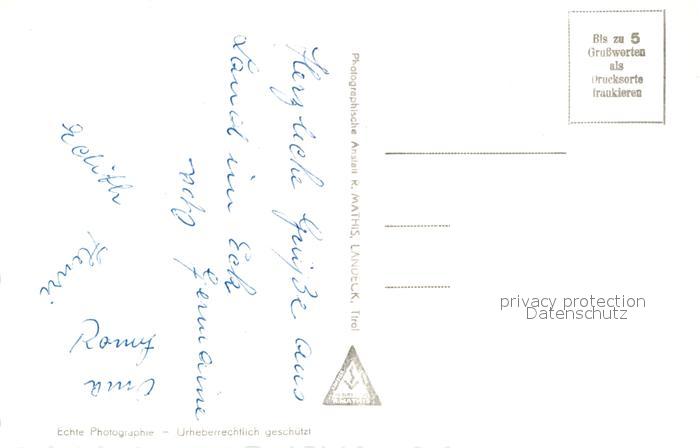 Herzliche Grüße aus
Land im Eck
Germaine
Edith
Henri
Romy
Oma
Photographische Anstalt R. MATHIS, LANDECK, Tirol
Bis zu 5
Grußworten
als
Drucksorte
frankieren
privacy protection
Datenschutz
Echte Photographie – Urheberrechtlich geschützt